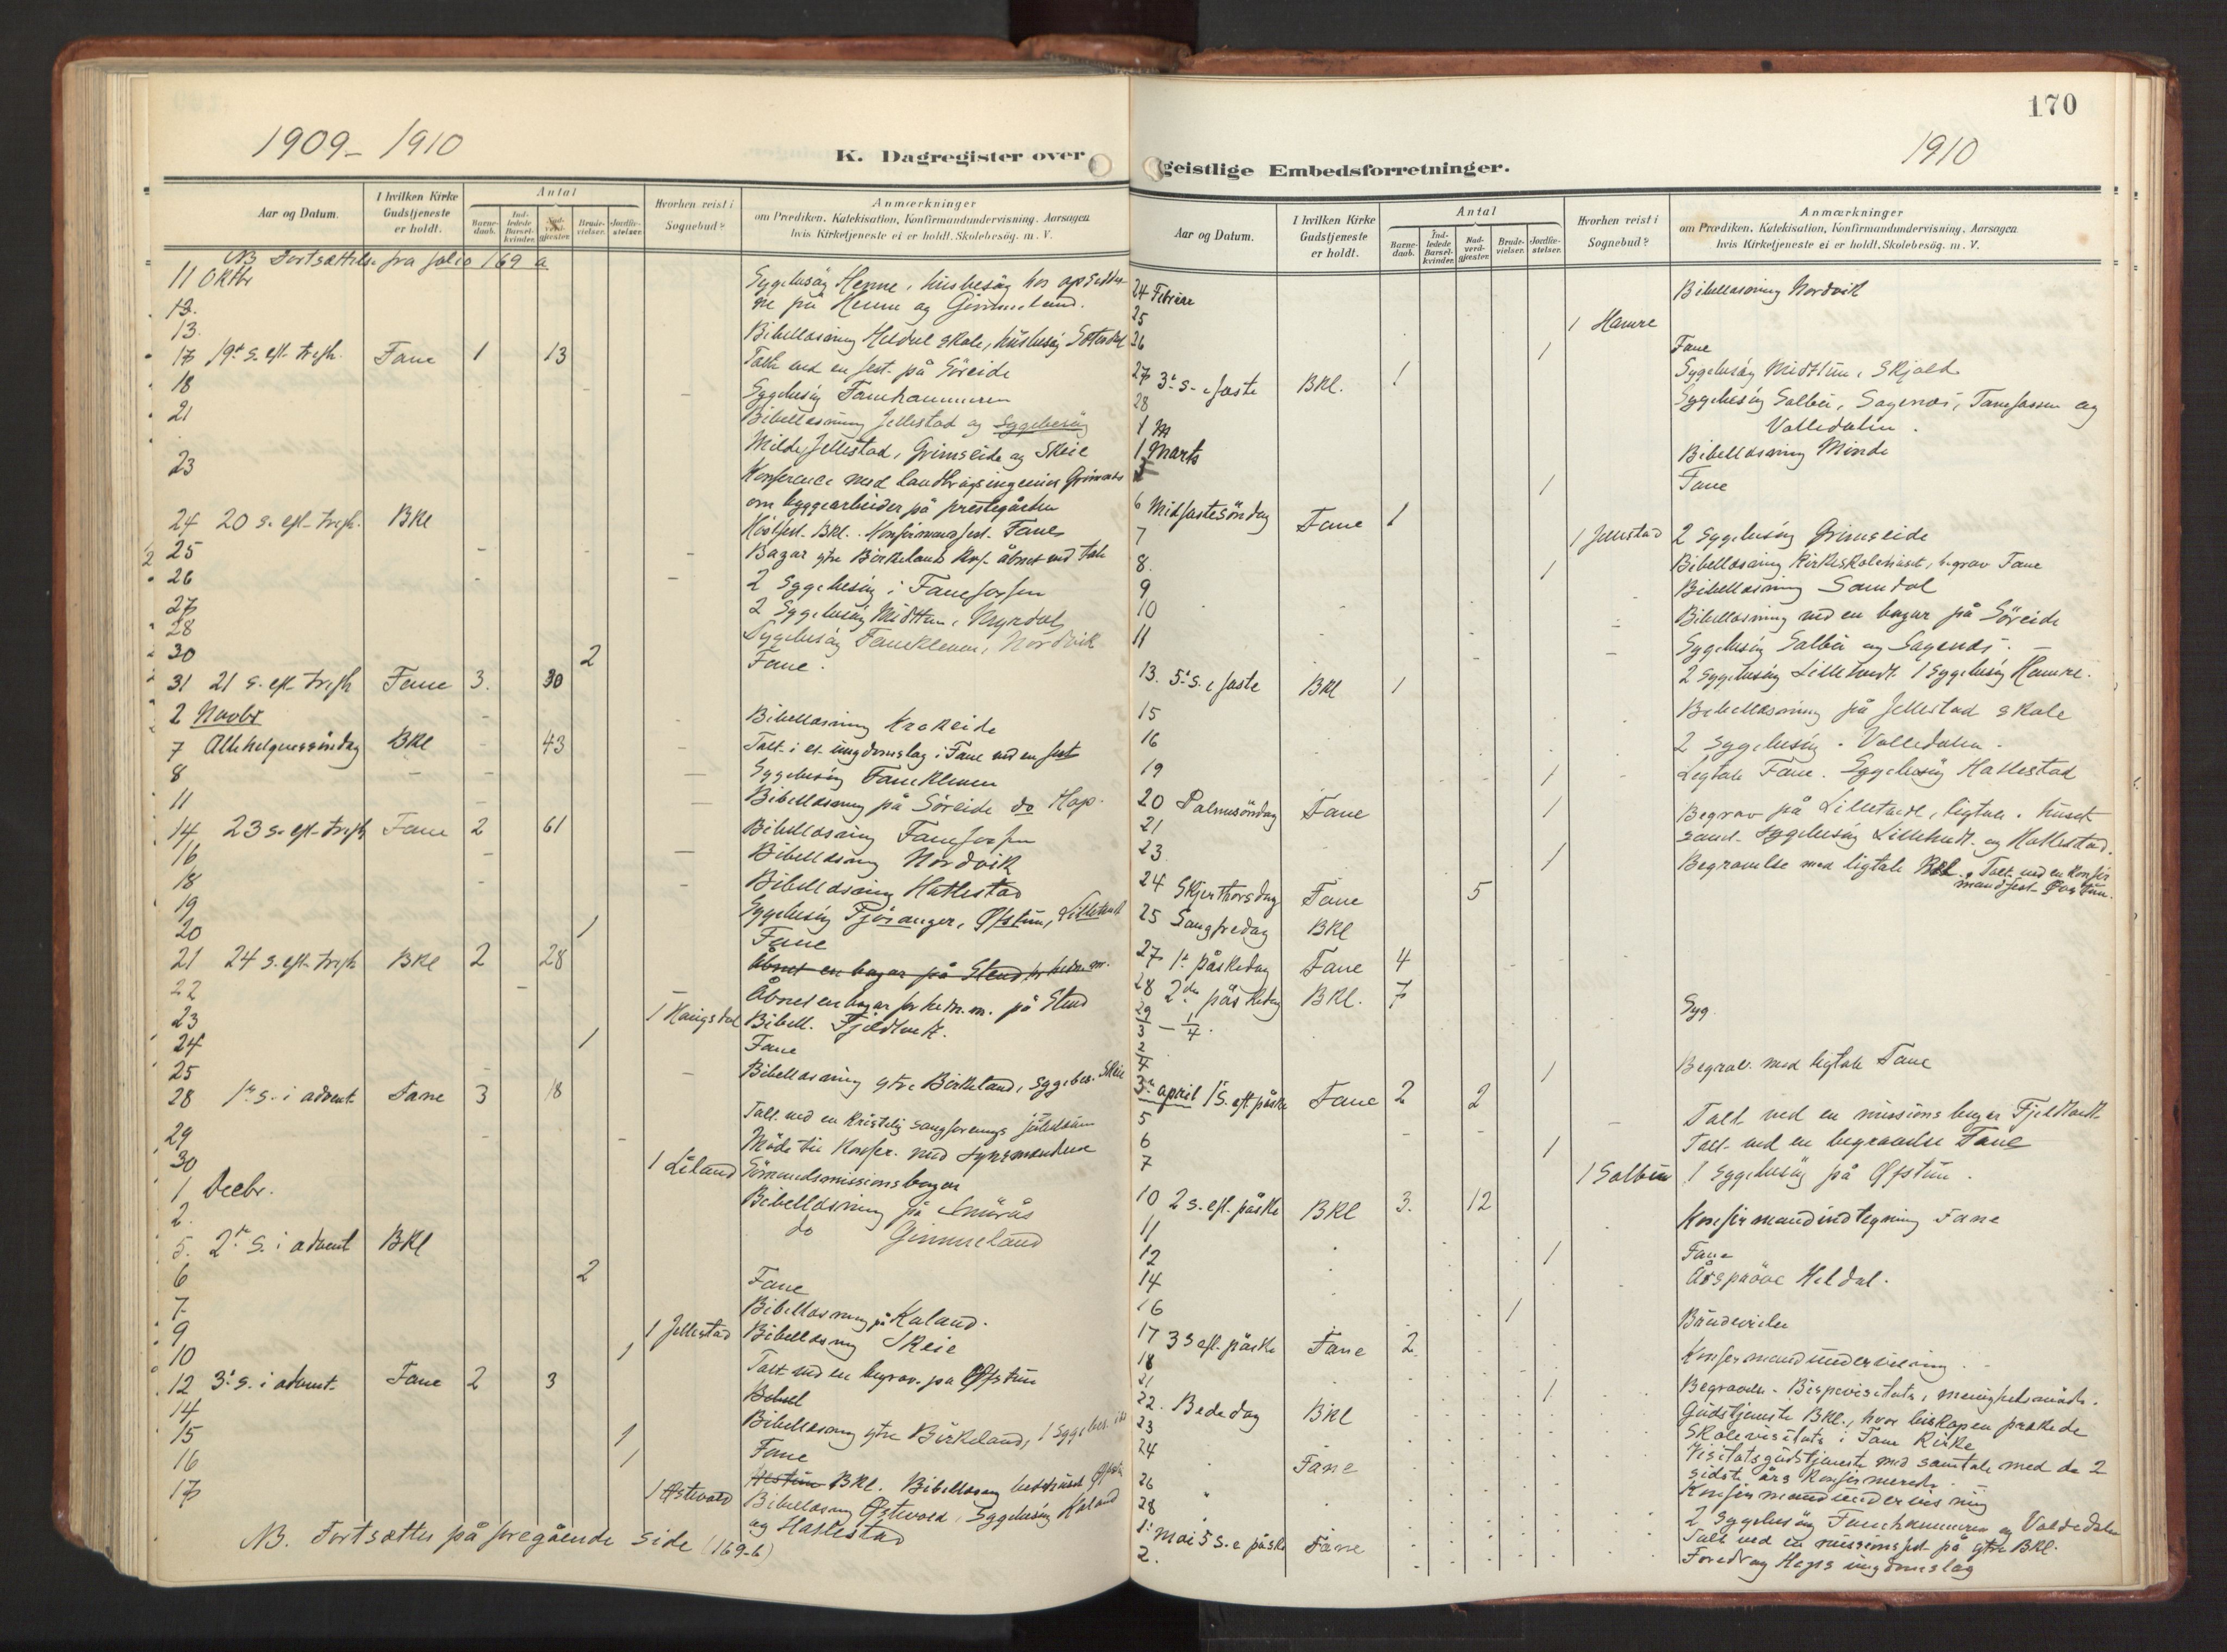 1909 - 1910
K. Dagregister over
Aar og Datum.
I hvilken Kirke Gudstjeneste er holdt.
Antal
Barnedaab.
Indledede Barselkvinder.
Nadverdgjester.
Brudevielser.
Jordfæstelser.
Hvorhen reist i Sognebud?
Anmærkninger
om Prædiken, Katekisation, Konfirmandundervisning, Aarsagen
hvis Kirketjeneste ei er holdt, Skolebesög. m. V.
NB Fortsættelse fra folio 169 a
11 Oktbr Sygebesög Henne, husbesög hos opsidder-
12. ne på Henne og Gimmeland.
13. Bibellæsning Heldal skole, husbesög
17 19de s. eft. trefh. Fane 1 13 Talt ved en fest på Söreide
18 Sygebesög Fanehammeren
21 Bibellæsning Jellestad og Sygebesög
Milde, Jellestad, Grimseide og Skeie
23 Konference med landbrugsingeniör
om byggearbeider på prestegården
24 20 s. eft. trefh. BKl Höstfest. BKl. Konfirmandfest. Fane
25 Bazar ytre Birkeland åbnet med tale
26 2 Sygebesög i Fanefossen
27 2 Sygebesög Midttun, Myrdal
28 Sygebesög Fanekleven, Nordvik
30 2 Fane.
31 21 s. eft. trefh Fane 3. 30
2 Novbr Bibellæsning Krokeide
7 Allehelgenssöndag BKl 43 Talt i et ungdomslag i Fane ved en fest
8 Sygebesög Fanekleven
11 Bibellæsning på Söreide do Hop.
14 23 s. eft. trefh Fane 2 61 Bibellæsning Fanefossen
16 Bibellæsning Nordvik
18 Bibellæsning Hatlestad
19 Sygebesög Fjösanger, Øfstun, Lilletvedt
20 1 Fane
21 24 s. eft. trefh BKl 2 28 Åbnet en bazar på Stend for hedn. m.
22 Åbnet en bazar for hedn. m. på Stend
23 1 Haugsdal Bibell. Fjeldtvedt.
24 1 Fane
25 Bibellæsning ytre Birkeland, sygebes. Skeie
28 1ste s. i advent Fane 3 18 Talt ved en kristelig sangforenings
29 Möde til konfer. med synsmændene
30 1 Liland Sömandsmissionsbazar
1 Decbr. Bibellæsning på Smörås
2. do Gimmeland
5. 2den s. i advent BKl
6 2 Fane
7. Bibellæsning på Kaland.
9 1 Jellestad Bibellæsning Skeie
10 1 Talt ved en begrav. på Øfstun
12 3de s. i advent Fane 2 3 Bibell
14 Bibellæsning ytre Birkeland, 1 Sygebes.
15 1 Fane
16 1 BKl. Bibellæsning
17 1 Østevold Bibellæsning Østevold, Sygebesög Kaland
og Hatlestad
NB. Fortsættes på foregående side (169-b)
170
1910
geistlige Embedsforretninger.
Aar og Datum.
I hvilken Kirke Gudstjeneste er holdt.
Antal
Barnedaab.
Indledede Barselkvinder.
Nadverdgjester.
Brudevielser.
Jordfæstelser.
Hvorhen reist i Sognebud?
Anmærkninger
om Prædiken, Katekisation, Konfirmandundervisning, Aarsagen
hvis Kirketjeneste ei er holdt, Skolebesög. m. V.
24 Februar Bibellæsning Nordvik
25 1 Hamre
26 1 Fane
27 3de s. i faste BKl. 1 Sygebesög Midttun, Skjold
28 Sygebesög Salbu, Sagenæs, Fanefossen og
1 M Valledalen.
1 Marts Bibellæsning Minde
1 Fane
6 Midfastesöndag Fane 1
7 1 Jellestad 2 Sygebesög Grimseide
8. 1 Bibellæsning Kirkeskolehuset, begrav Fane
9 Bibellæsning Samdal
10 Bibellæsning ved en bazar på Söreide
11 Sygebesög Salbu og Sagenæs.
13. 5te s. i faste BKl 1 2 Sygebesög Lilletvedt. 1 Sygebesög Hamre.
15 Bibellæsning på Jellestad skole
16 2 Sygebesög. Valledalen.
19 1 Ligtale Fane. Sygebesög Hatlestad
20 Palmesöndag Fane 1 Begrav på Lilletvedt, ligtale i huset
21 samt sygebesög Lilletvedt og Hatlestad.
23 1 Begravelse med ligtale BKl. Talt ved en konfir
mandfest
24 Skjerthorsdag Fane 5
25 Langfredag BKl
27 1ste påskedag Fane 4
28 2den påskedag BKl. 7
29/3 - 1/4. Syg.
2/4 1 Begrav. med ligtale Fane
3die april 1ste s. eft. påske Fane 2 2
5 Talt ved en missionsbazar Fjeldtvedt
6 1 Talt ved en begravelse Fane
7 1 Salbu 1 Sygebesög på Øfstun.
10 2 s. eft. påske BKl 3. 12
11 Konfirmandindtegning Fane
12 1 Fane
14 Årspröve Heldal.
16 1 Brudevielse
17 3 s eft. påske Fane 2
18 Konfirmandundervisning.
21 1 Begravelse. Bispevisitats, menighedsmöde.
22. Bededag BKl Gudstjeneste BKl., hvor biskopen prækede
23 Skolevisitats i Fane Kirke
24 " Fane Visitatsgudstjeneste med samtale med de 2
sidste års konfirmerede.
26 Konfirmandundervisning
28 2 Sygebesög Fanehammeren og Valledalen
1. Mai 5 s. e. påske Fane Talt ved en missionsfest på ytre BKl.
2. Foredrag Hops ungdomslag